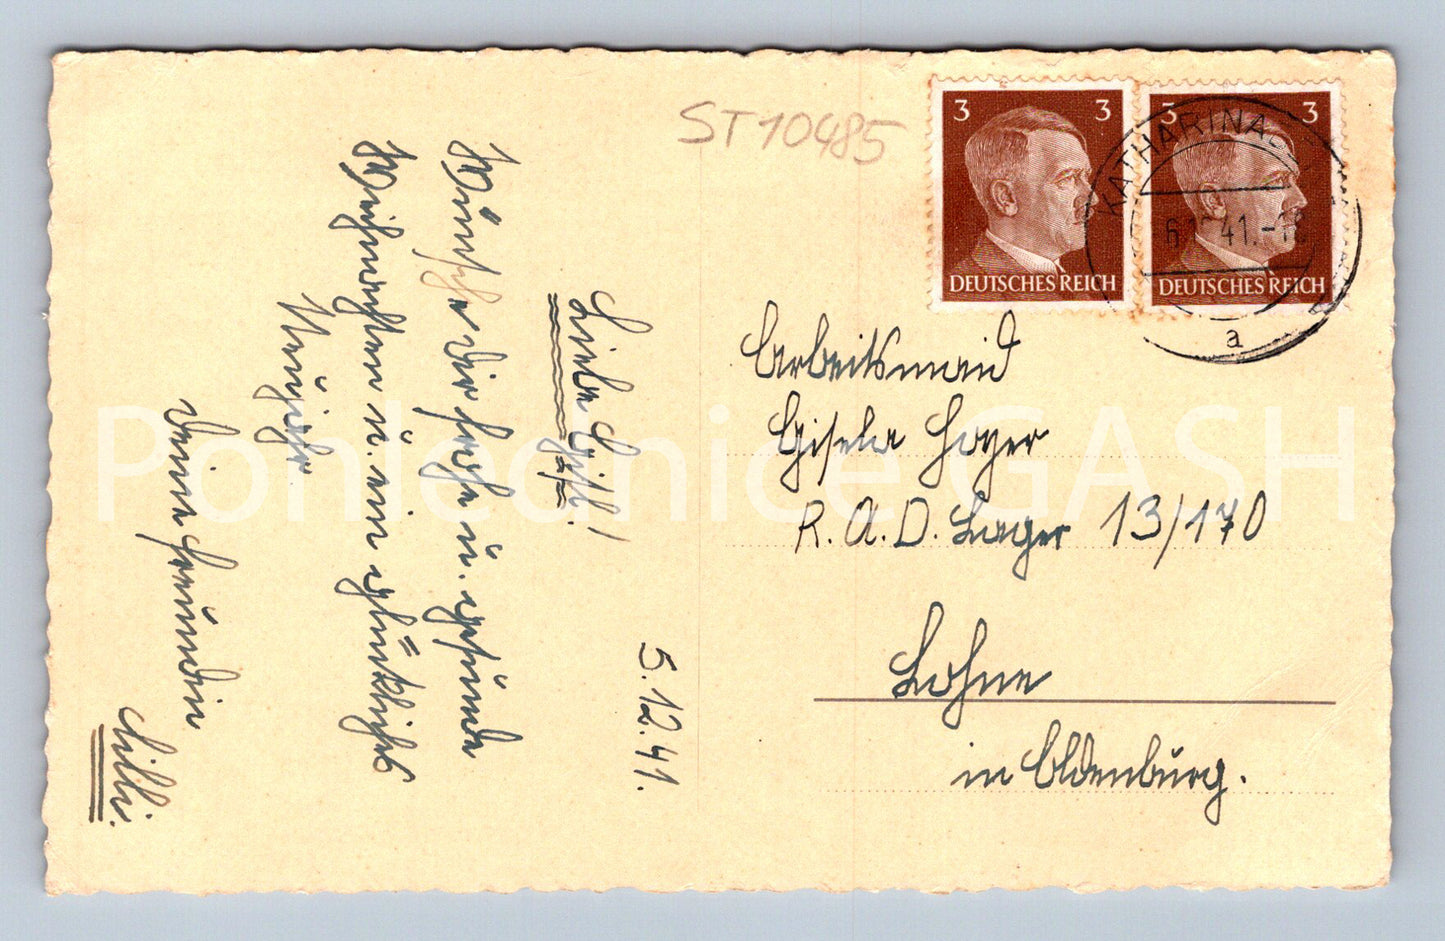 ST10485
3 3
DEUTSCHES REICH
3 3
DEUTSCHES REICH
KATHARINA
41.-18
a
5.12.41.
Liebe Gisl!
Wünsche dir frohe u. gesunde
Weihnachten u. ein glückliches
Neujahr
deine Freundin
Cilli.
Arbeitsmaid
Gisela Hoyer
R.A.D. Lager 13/170
Lohne
in Oldenburg.
Pohlednice GASH